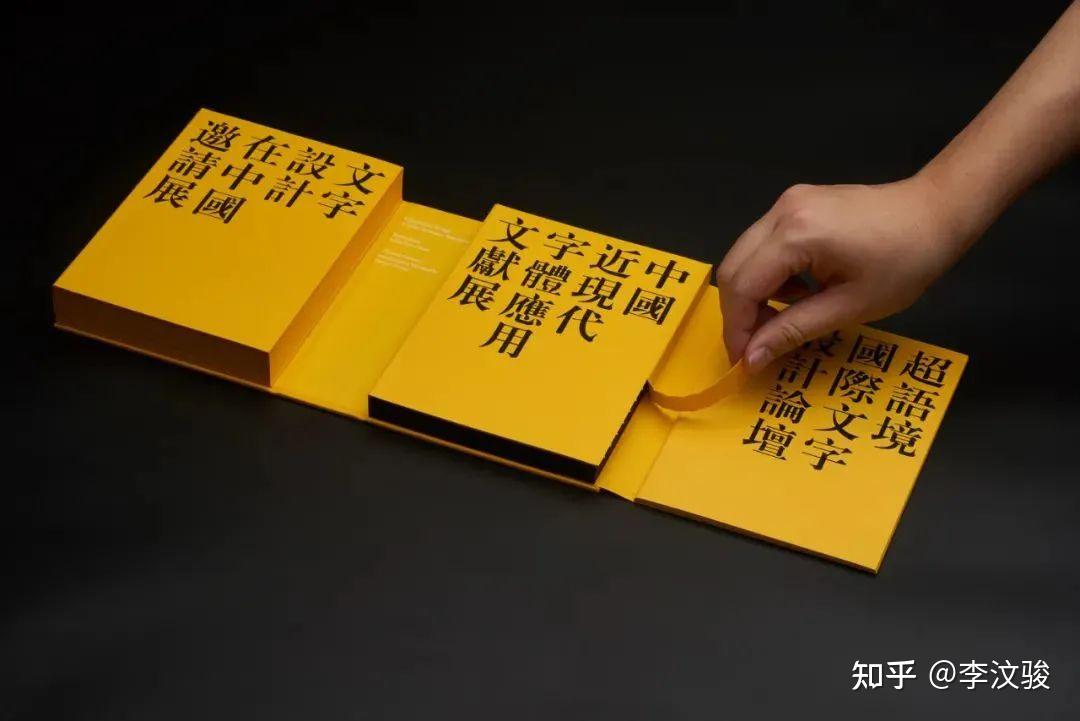 文字
設計
在中國
邀請展
中國
近現代
字體應用
文獻展
超語境
國際文字
設計論壇
知乎 @李汶骏